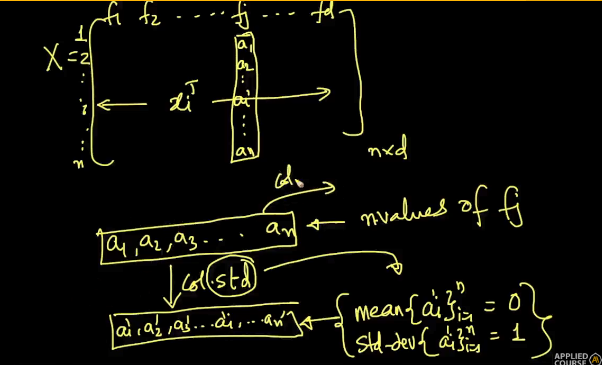 f1 f2 ..... fj ... fd
1
X = 2
a1
a2
:
i
xiᵀ
ai
:
n
an
n×d
col.
a1, a2, a3 ... an ← n values of fj
↓ col. std
a1', a2', a3' ... ai', ... an'
mean{ai'}ⁿi=1 = 0
std-dev{ai'}ⁿi=1 = 1
APPLIED
COURSE